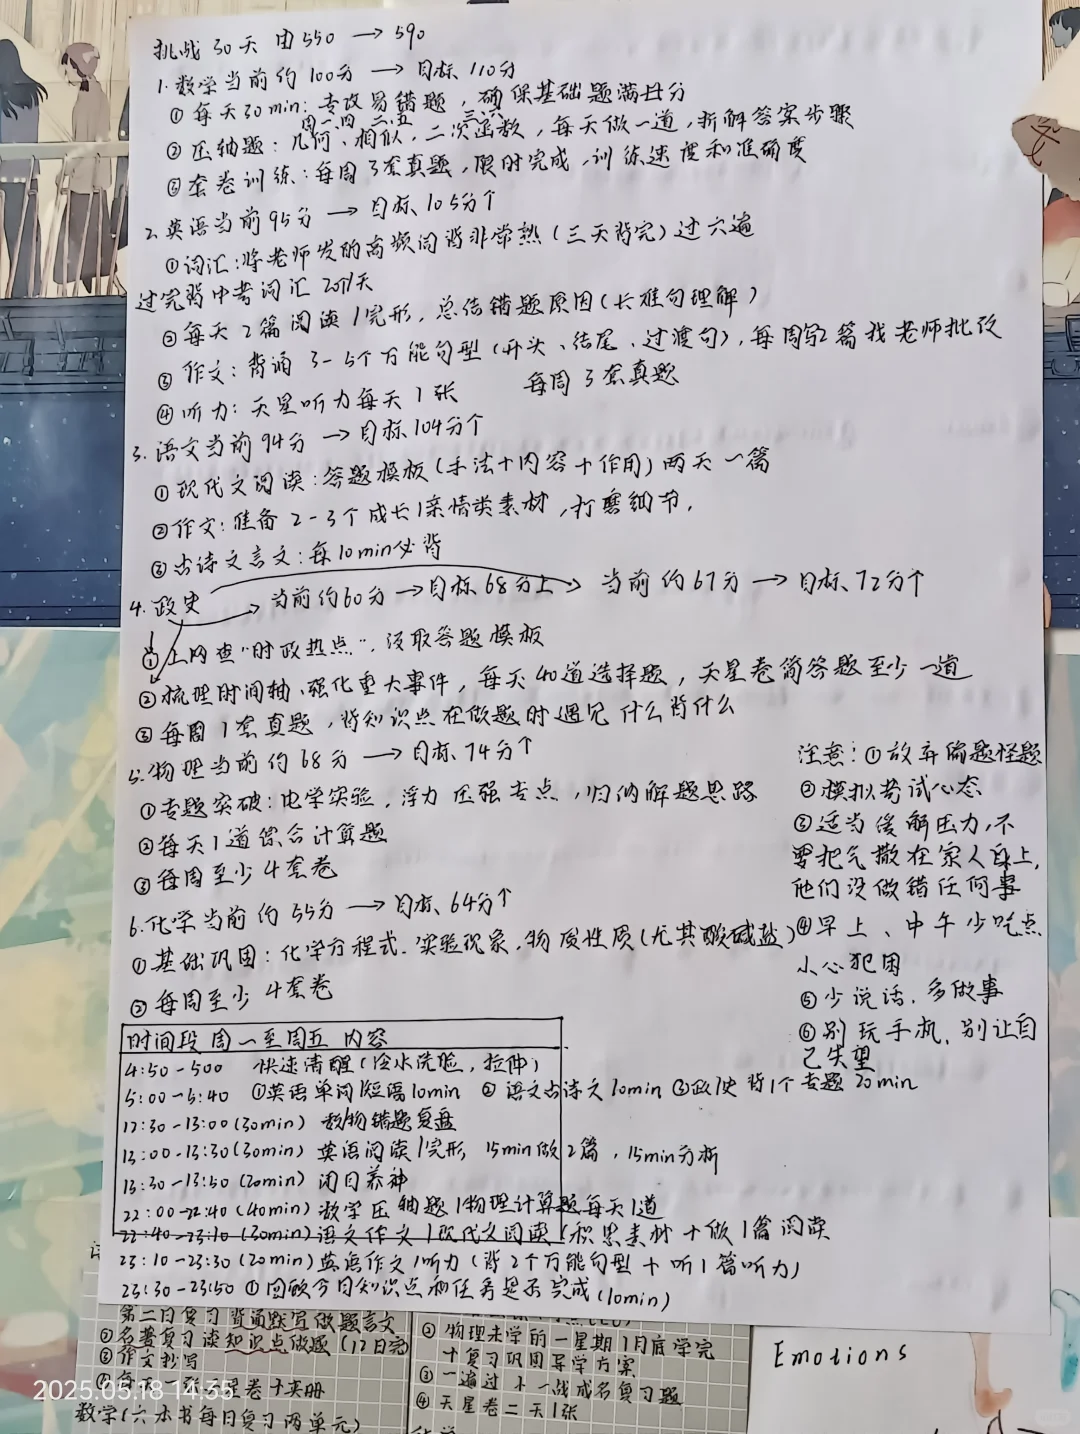 挑战 30天 由550 → 590
1. 数学当前约100分 → 目标110分
① 每天30min: 专攻易错题, 确保基础题满分
周一、四 二、五 三、六
② 压轴题: 几何、相似, 二次函数, 每天做一道, 拆解答案步骤
③ 套卷训练: 每周3套真题, 限时完成, 训练速度和准确度
2. 英语当前95分 → 目标105分↑
①词汇:将老师发的高频词背非常熟(三天背完)过六遍
过完背中考词汇 20天
② 每天2篇阅读1完形, 总结错题原因(长难句理解)
③ 作文: 背诵 3-5个万能句型(开头、结尾、过渡句), 每周写2篇找老师批改
④ 听力: 天星听力每天1张 每周3套真题
3. 语文当前94分 → 目标104分↑
① 现代文阅读: 答题模板(手法+内容+作用)两天一篇
②作文: 准备2-3个成长/亲情类素材, 打磨细节,
③古诗文言文: 每10min必背
4. 政史 当前约60分 → 目标68分上 当前约67分 → 目标72分↑
① 上网查"时政热点", 汲取答题模板
②梳理时间轴、强化重大事件, 每天40道选择题, 天星卷简答题至少一道
③ 每周1套真题, 背知识点在做题时遇见什么背什么
5. 物理当前约68分 → 目标74分↑
①专题突破: 电学实验, 浮力压强专点, 归纳解题思路
②每天1道综合计算题
③每周至少4套卷
6. 化学当前约55分 → 目标64分↑
①基础巩固: 化学方程式、实验现象, 物质性质(尤其酸碱盐)
② 每周至少4套卷
注意: ①放弃偏题怪题
②模拟考试心态
③适当缓解压力, 不
要把气撒在家人身上,
他们没做错任何事
④早上、中午少吃点
小心犯困
⑤少说话, 多做事
⑥别玩手机, 别让自
己失望
时间段 周一至周五 内容
4:50-500 快速清醒(冷水洗脸, 拉伸)
5:00-5:40 ①英语单词/短语10min ②语文古诗文10min ③政/史背1个专题20min
12:30-13:00(30min) 数/物错题复盘
13:00-13:30(30min) 英语阅读/完形, 15min做2篇, 15min分析
13:30-13:50(20min) 闭目养神
22:00-22:40(40min) 数学压轴题/物理计算题每天1道
22:40-23:10(30min)语文作文/现代文阅读(积累素材+做1篇阅读
23:10-23:30(20min)英语作文/听力(背2个万能句型+听1篇听力)
23:30-23:50 ①回顾今日知识点和任务是否完成(10min)
第二日复习背诵默写做题言文
②名著复习读知识点做题(12日完)
③作文抄写
每天一张 星卷+实册
数学(六本书每日复习两单元)
② 物理未学的一星期1月底学完
+复习巩固导学方案
③ 一遍过+一战成名复习题
④ 天星卷二天1张
Emotions
2025.05.18 14:35